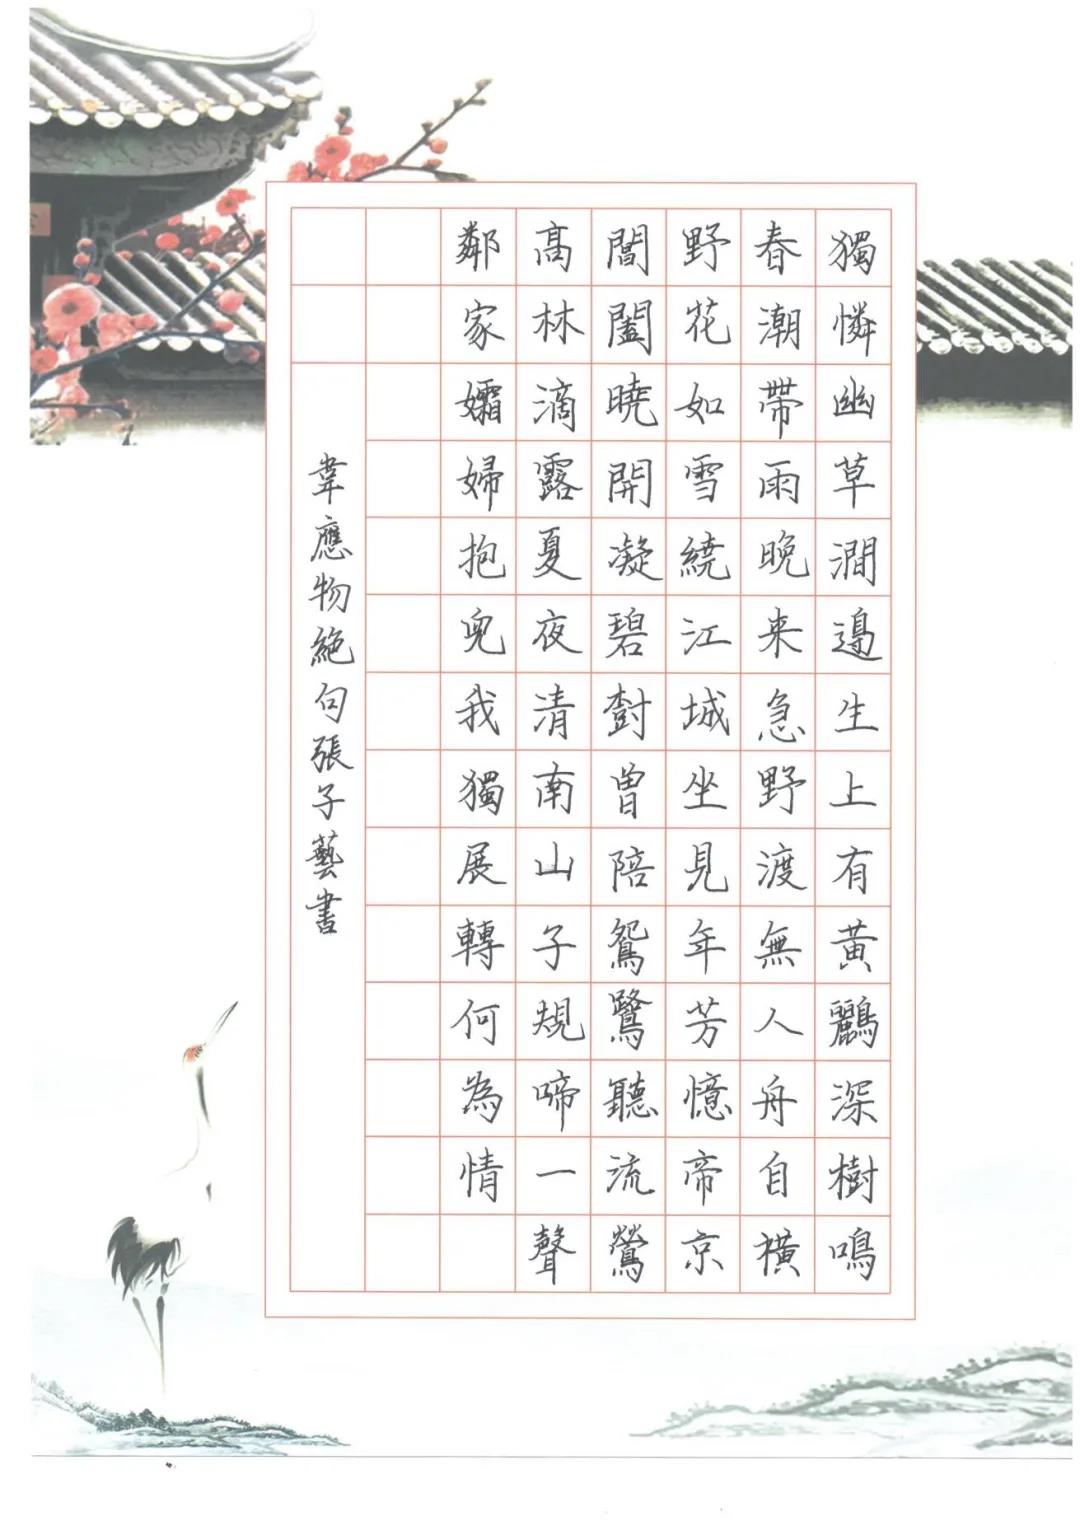 獨憐幽草澗邊生上有黃鸝深樹鳴
春潮帶雨晚来急野渡無人舟自橫
野花如雪繞江城坐見年芳憶帝京
閶闔曉開凝碧樹曾陪鴛鷺聽流鶯
高林滴露夏夜清南山子規啼一聲
鄰家孀婦抱兒我獨展轉何為情
韋應物絕句張子藝書